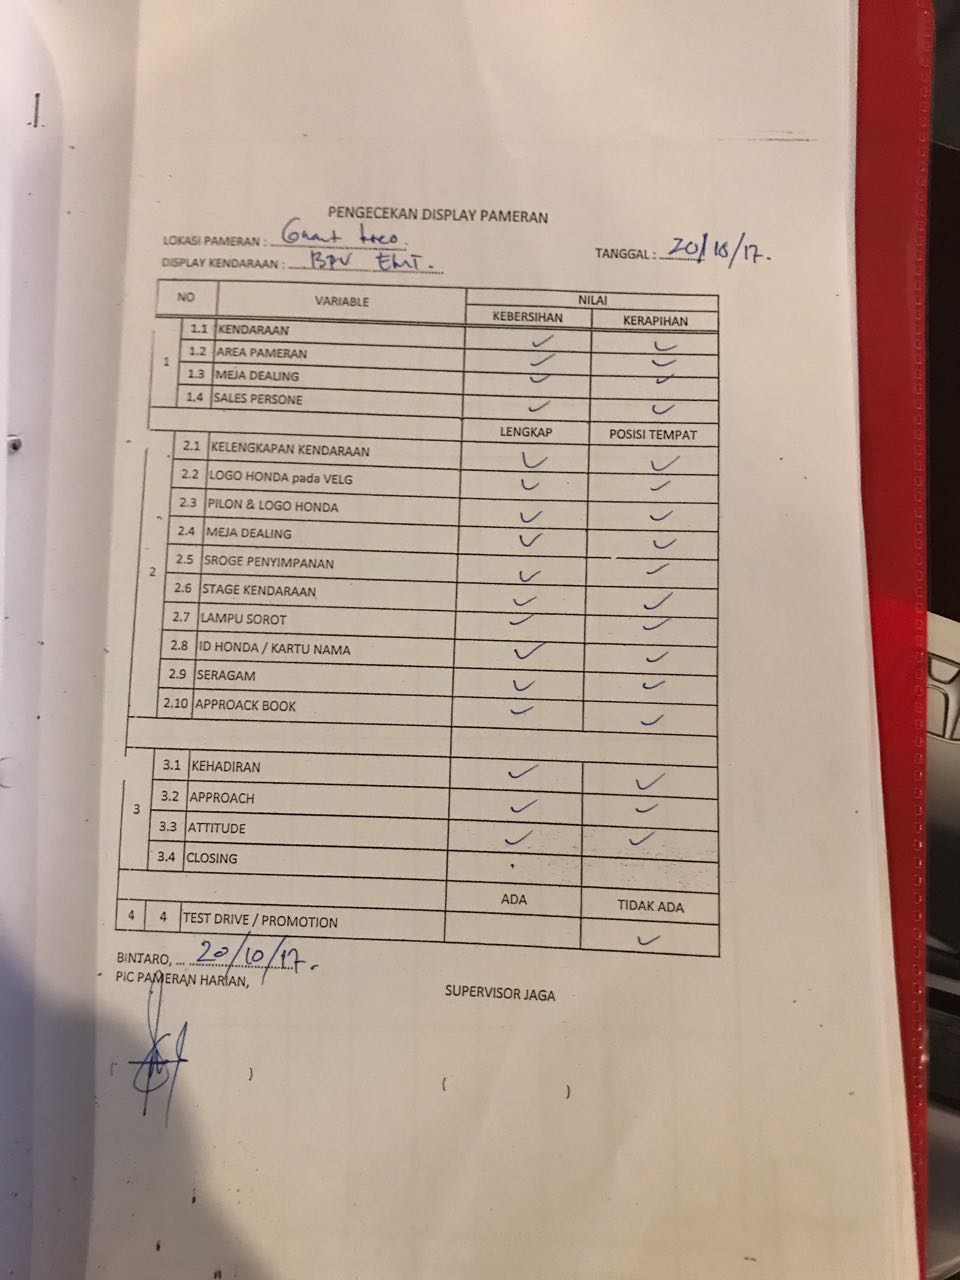 PENGECEKAN DISPLAY PAMERAN
LOKASI PAMERAN :
TANGGAL : 20/10/17.
DISPLAY KENDARAAN : BRV
NO VARIABLE NILAI
KEBERSIHAN KERAPIHAN
1
1.1 KENDARAAN ✓ ✓
1.2 AREA PAMERAN ✓ ✓
1.3 MEJA DEALING ✓ ✓
1.4 SALES PERSONE ✓ ✓
LENGKAP POSISI TEMPAT
2
2.1 KELENGKAPAN KENDARAAN ✓ ✓
2.2 LOGO HONDA pada VELG ✓ ✓
2.3 PILON & LOGO HONDA ✓ ✓
2.4 MEJA DEALING ✓ ✓
2.5 SROGE PENYIMPANAN ✓ ✓
2.6 STAGE KENDARAAN ✓ ✓
2.7 LAMPU SOROT ✓ ✓
2.8 ID HONDA / KARTU NAMA ✓ ✓
2.9 SERAGAM ✓ ✓
2.10 APPROACK BOOK ✓ ✓
3
3.1 KEHADIRAN ✓ ✓
3.2 APPROACH ✓ ✓
3.3 ATTITUDE ✓ ✓
3.4 CLOSING
ADA TIDAK ADA
4 4 TEST DRIVE / PROMOTION ✓
BINTARO, ... 20/10/17.
PIC PAMERAN HARIAN, SUPERVISOR JAGA
( ) ( )